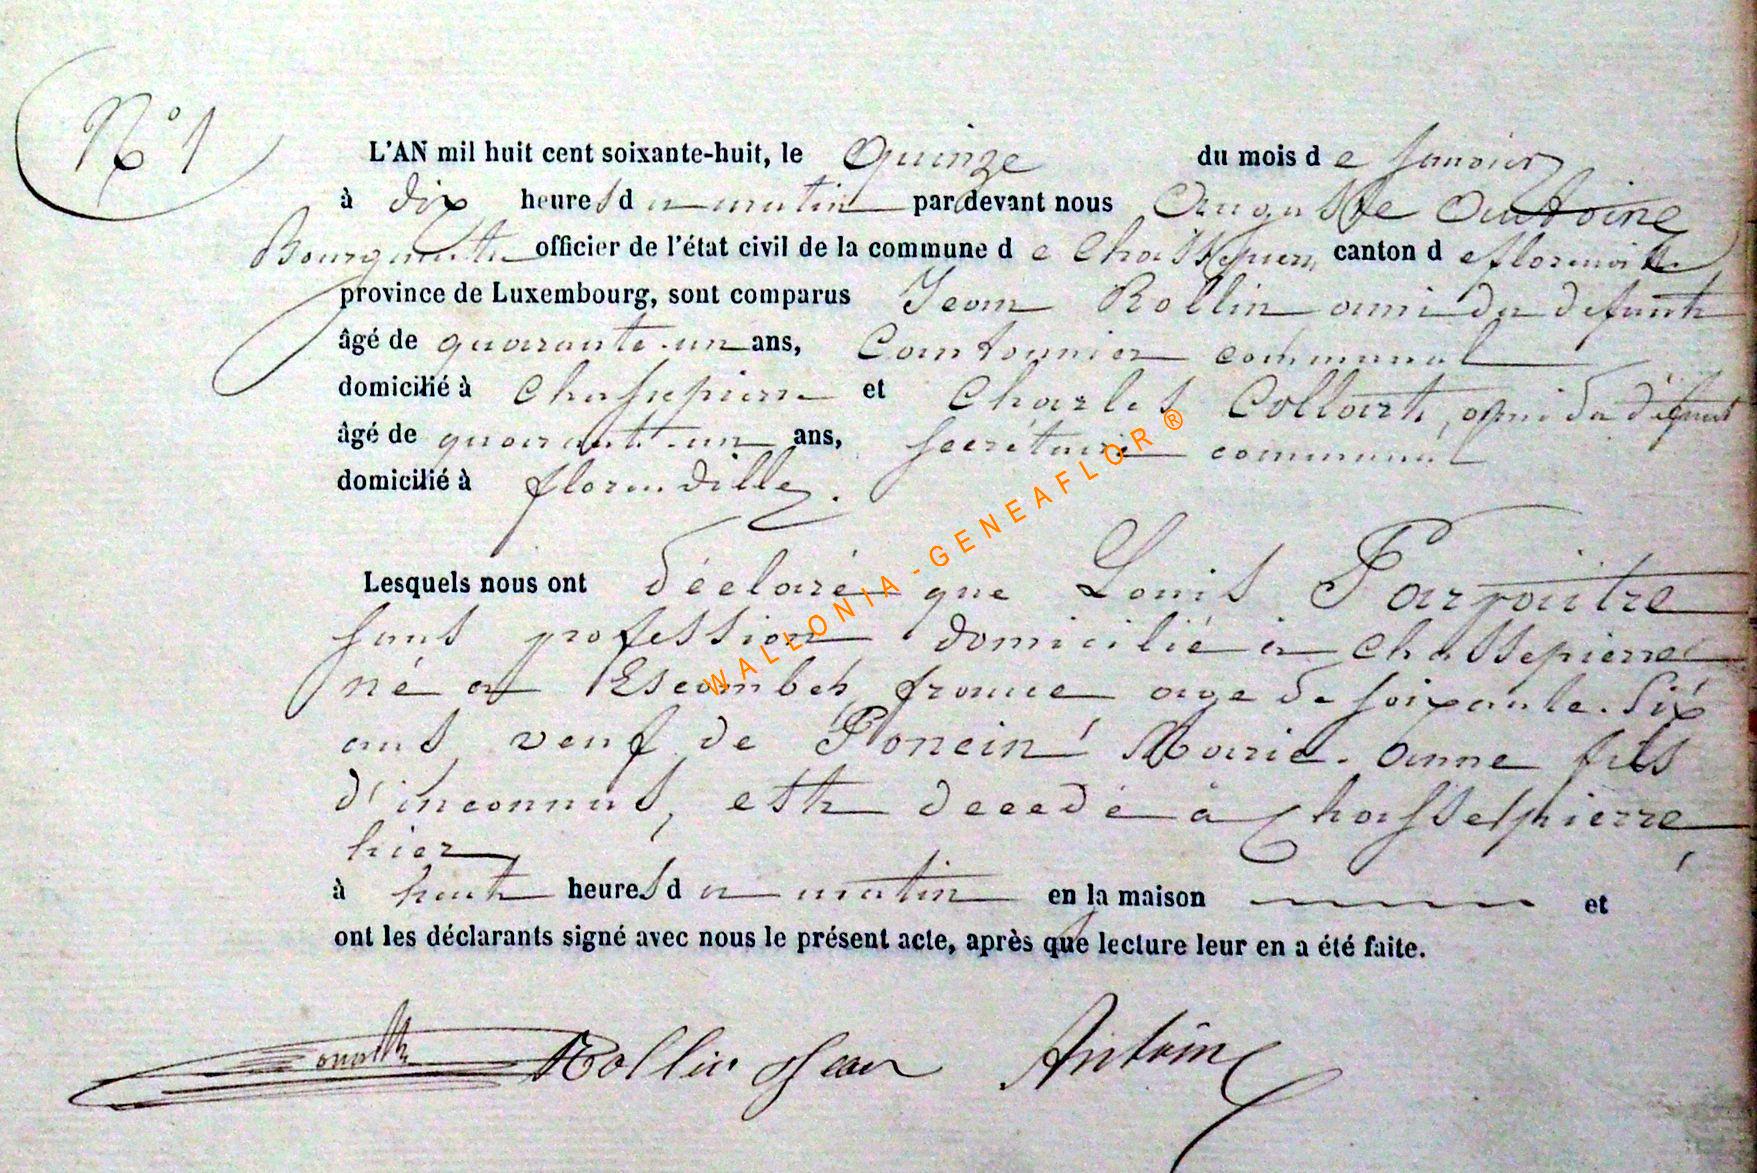 N° 1
L'AN mil huit cent soixante-huit, le quinze du mois de Janvier
à dix heures du matin par devant nous Auguste Antoine
Bourgmestre officier de l'état civil de la commune de Chassepierre, canton de florenville
province de Luxembourg, sont comparus Jean Rollin ami du defunt
âgé de quarante-un ans, Cantonnier communal
domicilié à Chassepierre et Charles Collart, ami du défunt
âgé de quarante-un ans, secrétaire communal
domicilié à florenville.
Lesquels nous ont déclaré que Louis Parpaitre
sans profession domicilié à Chassepierre
né à Escombes france age de soixante-six
ans veuf de Poncin Marie-anne fils
d'inconnus, est decedé à Chassepierre
hier
à huit heures du matin en la maison et
ont les déclarants signé avec nous le présent acte, après que lecture leur en a été faite.
Rollin Jean Antoine
WALLONIA-GENEAFLOR ®